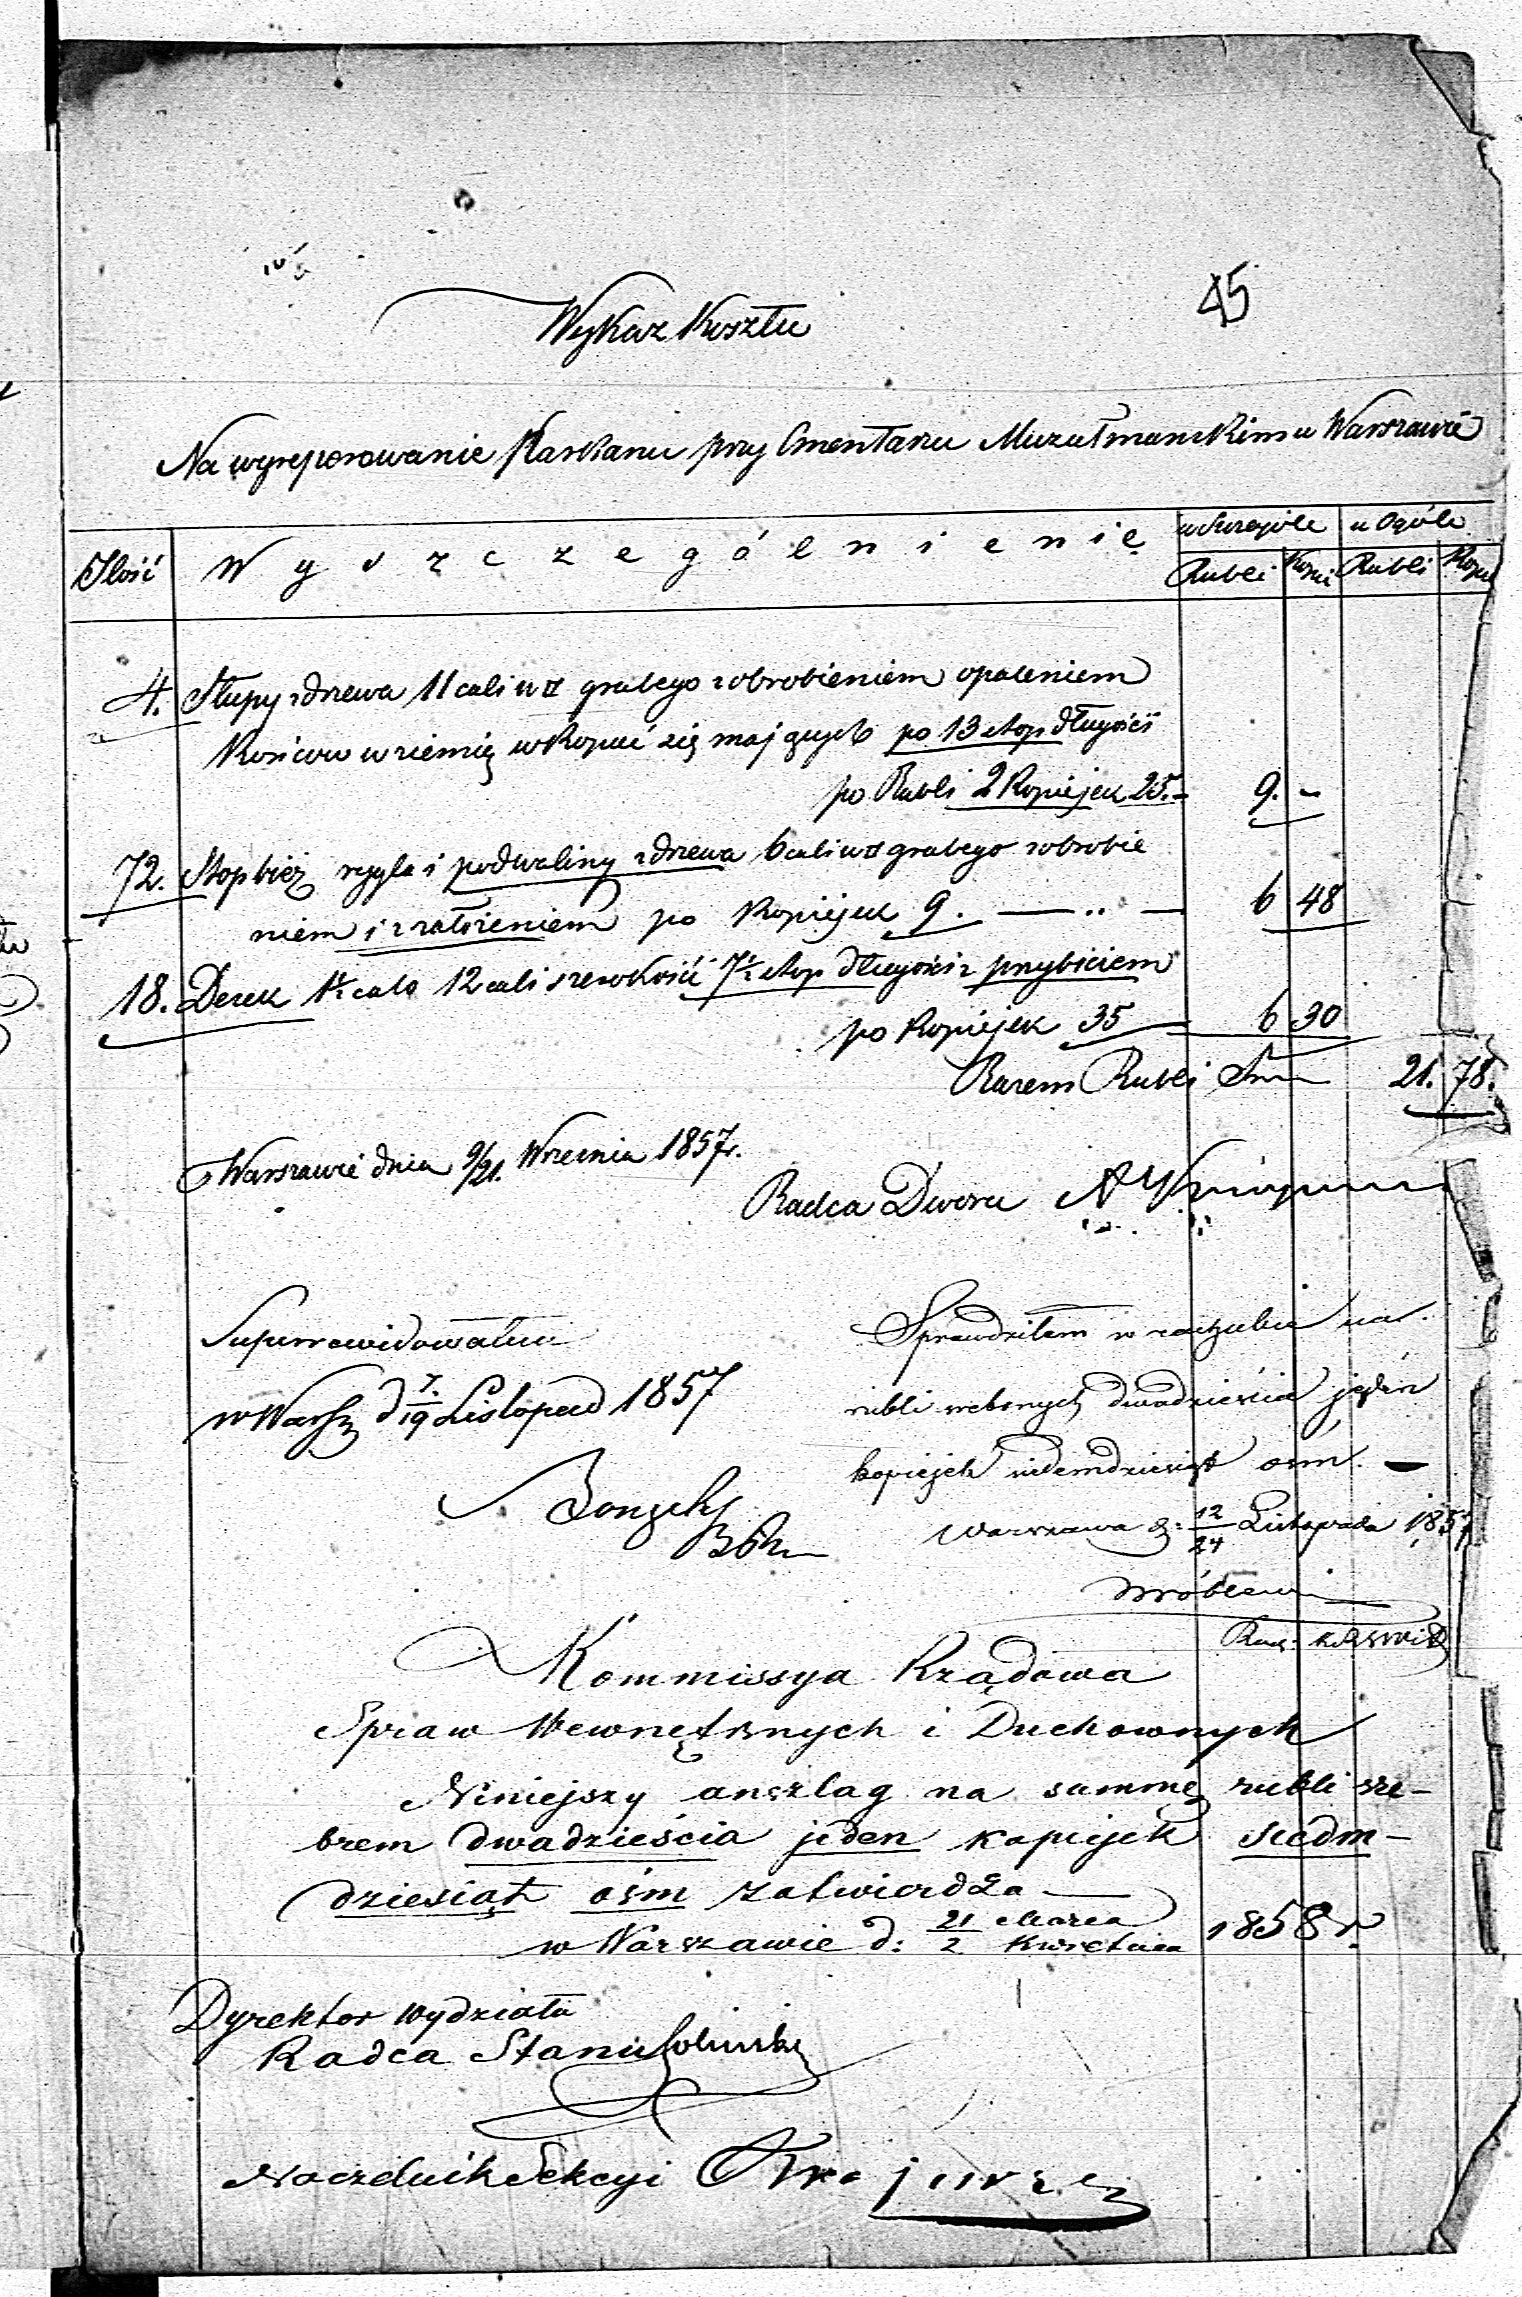 45
Wykaz Kosztu
Na wyreperowanie Parkanu przy Cmentarzu Muzułmańskim w Warszawie
Ilość Wyszczególnienie w Szczególe w Ogóle
Rubli Kopie Rubli Kopie
4. Słupy z drzewa 11 cali w □ grubego z obrobieniem opaleniem
końców w ziemię wkopać się mających po 13 stop długości
po Rubli 2 Kopiejek 25.– 9. –
72. Stop bież rygla i podwaliny z drzewa 6 cali w □ grubego z obrobie
niem i z założeniem po Kopiejek 9. — „ — 6 48
18. Desek 1½ calo 12 cali szerokości 7½ stop długości z przybiciem
po Kopiejek 35 6 30
Razem Rubli Sr. 21. 78.
w Warszawie dnia 9/21. Września 1857r.
Radca Dworu
Superrewidowałem
w Warsz d 7/19 Listopad 1857
Sprawdziłem w rachubie na
rubli srebrnych dwadzieścia jeden
kopiejek siedemdziesiąt ośm. —
Warszawa d: 12/24 Listopada 1857
Kommissya Rządowa
Spraw Wewnętrznych i Duchownych
Niniejszy anszlag na summę rubli sre-
brem dwadzieścia jeden kopiejek siedm-
dziesiąt ośm zatwierdza —
w Warszawie d: 21 Marca / 2 Kwietnia 1858 r.
Dyrektor Wydziału
Radca Stanu
Naczelnik Sekcyi